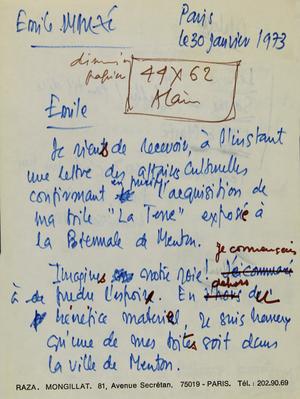 Emile MARZÉ
Paris
le 30 janvier 1973
dimension
papier
44 X 62
Alain
Emile
Je viens de recevoir, à l'instant
une lettre des affaires culturelles
confirmant en principe l'acquisition de
ma toile "La Terre" exposée à
la Biennale de Menton.
je commençais
Imaginez notre joie !
à perdre l'espoir. En dehors du
bénéfice materiel, Je suis heureux
qu'une de mes toiles soit dans
la ville de Menton.
RAZA. MONGILLAT. 81, Avenue Secrétan. 75019 - PARIS. Tél.: 202.90.69